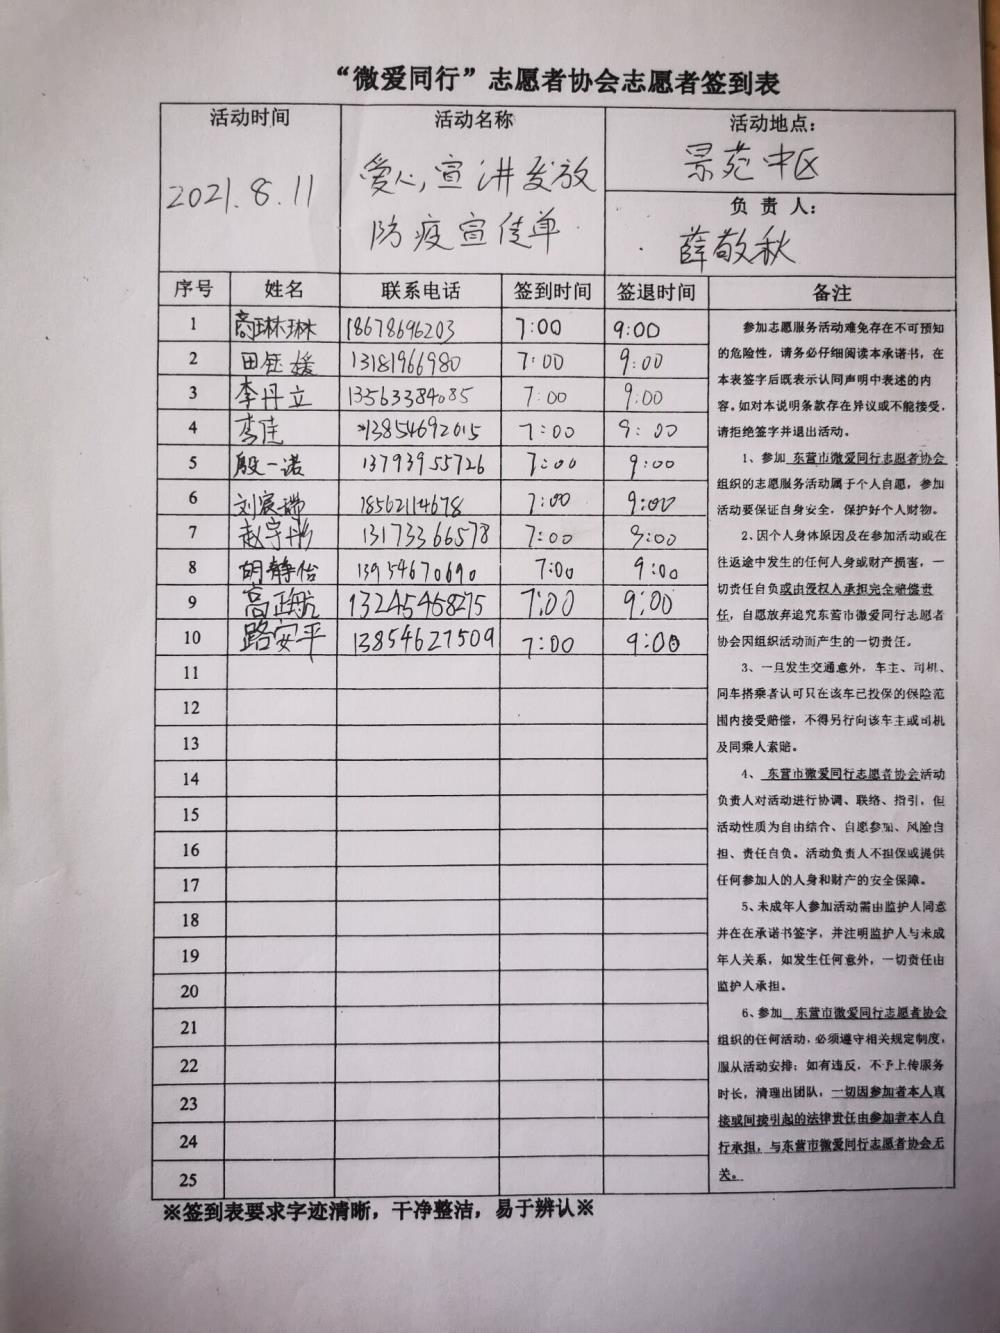 “微爱同行”志愿者协会志愿者签到表
活动时间 活动名称 活动地点：
2021.8.11 爱心,宣讲发放 景苑中区
防疫宣传单 负 责 人：
薛敬秋
序号 姓名 联系电话 签到时间 签退时间 备注
1 高琳琳 18678696203 7:00 9:00
2 田钰媛 13181966980 7:00 9:00
3 李丹立 13563384085 7:00 9:00
4 李佳 13854692015 7:00 9:00
5 殷一诺 13793955726 7:00 9:00
6 刘宸瑞 18562114678 7:00 9:00
7 赵宇彤 13173366578 7:00 9:00
8 胡静怡 13954670690 7:00 9:00
9 高正航 13245458275 7:00 9:00
10 路安平 13854627509 7:00 9:00
11
12
13
14
15
16
17
18
19
20
21
22
23
24
25
参加志愿服务活动难免存在不可预知
的危险性，请务必仔细阅读本承诺书，在
本表签字后既表示认同声明中表述的内
容。如对本说明条款存在异议或不能接受，
请拒绝签字并退出活动。
1、参加 东营市微爱同行志愿者协会
组织的志愿服务活动属于个人自愿，参加
活动要保证自身安全，保护好个人财物。
2、因个人身体原因及在参加活动或在
往返途中发生的任何人身或财产损害，一
切责任自负或由侵权人承担完全赔偿责
任，自愿放弃追究东营市微爱同行志愿者
协会因组织活动而产生的一切责任。
3、一旦发生交通意外，车主、司机、
同车搭乘者认可只在该车已投保的保险范
围内接受赔偿，不得另行向该车主或司机
及同乘人索赔。
4、 东营市微爱同行志愿者协会活动
负责人对活动进行协调、联络、指引，但
活动性质为自由结合、自愿参加、风险自
担、责任自负。活动负责人不担保或提供
任何参加人的人身和财产的安全保障。
5、未成年人参加活动需由监护人同意
并在在承诺书签字，并注明监护人与未成
年人关系，如发生任何意外，一切责任由
监护人承担。
6、参加 东营市微爱同行志愿者协会
组织的任何活动，必须遵守相关规定制度，
服从活动安排；如有违反，不予上传服务
时长，清理出团队，一切因参加者本人直
接或间接引起的法律责任由参加者本人自
行承担，与东营市微爱同行志愿者协会无
关。
※签到表要求字迹清晰，干净整洁，易于辨认※